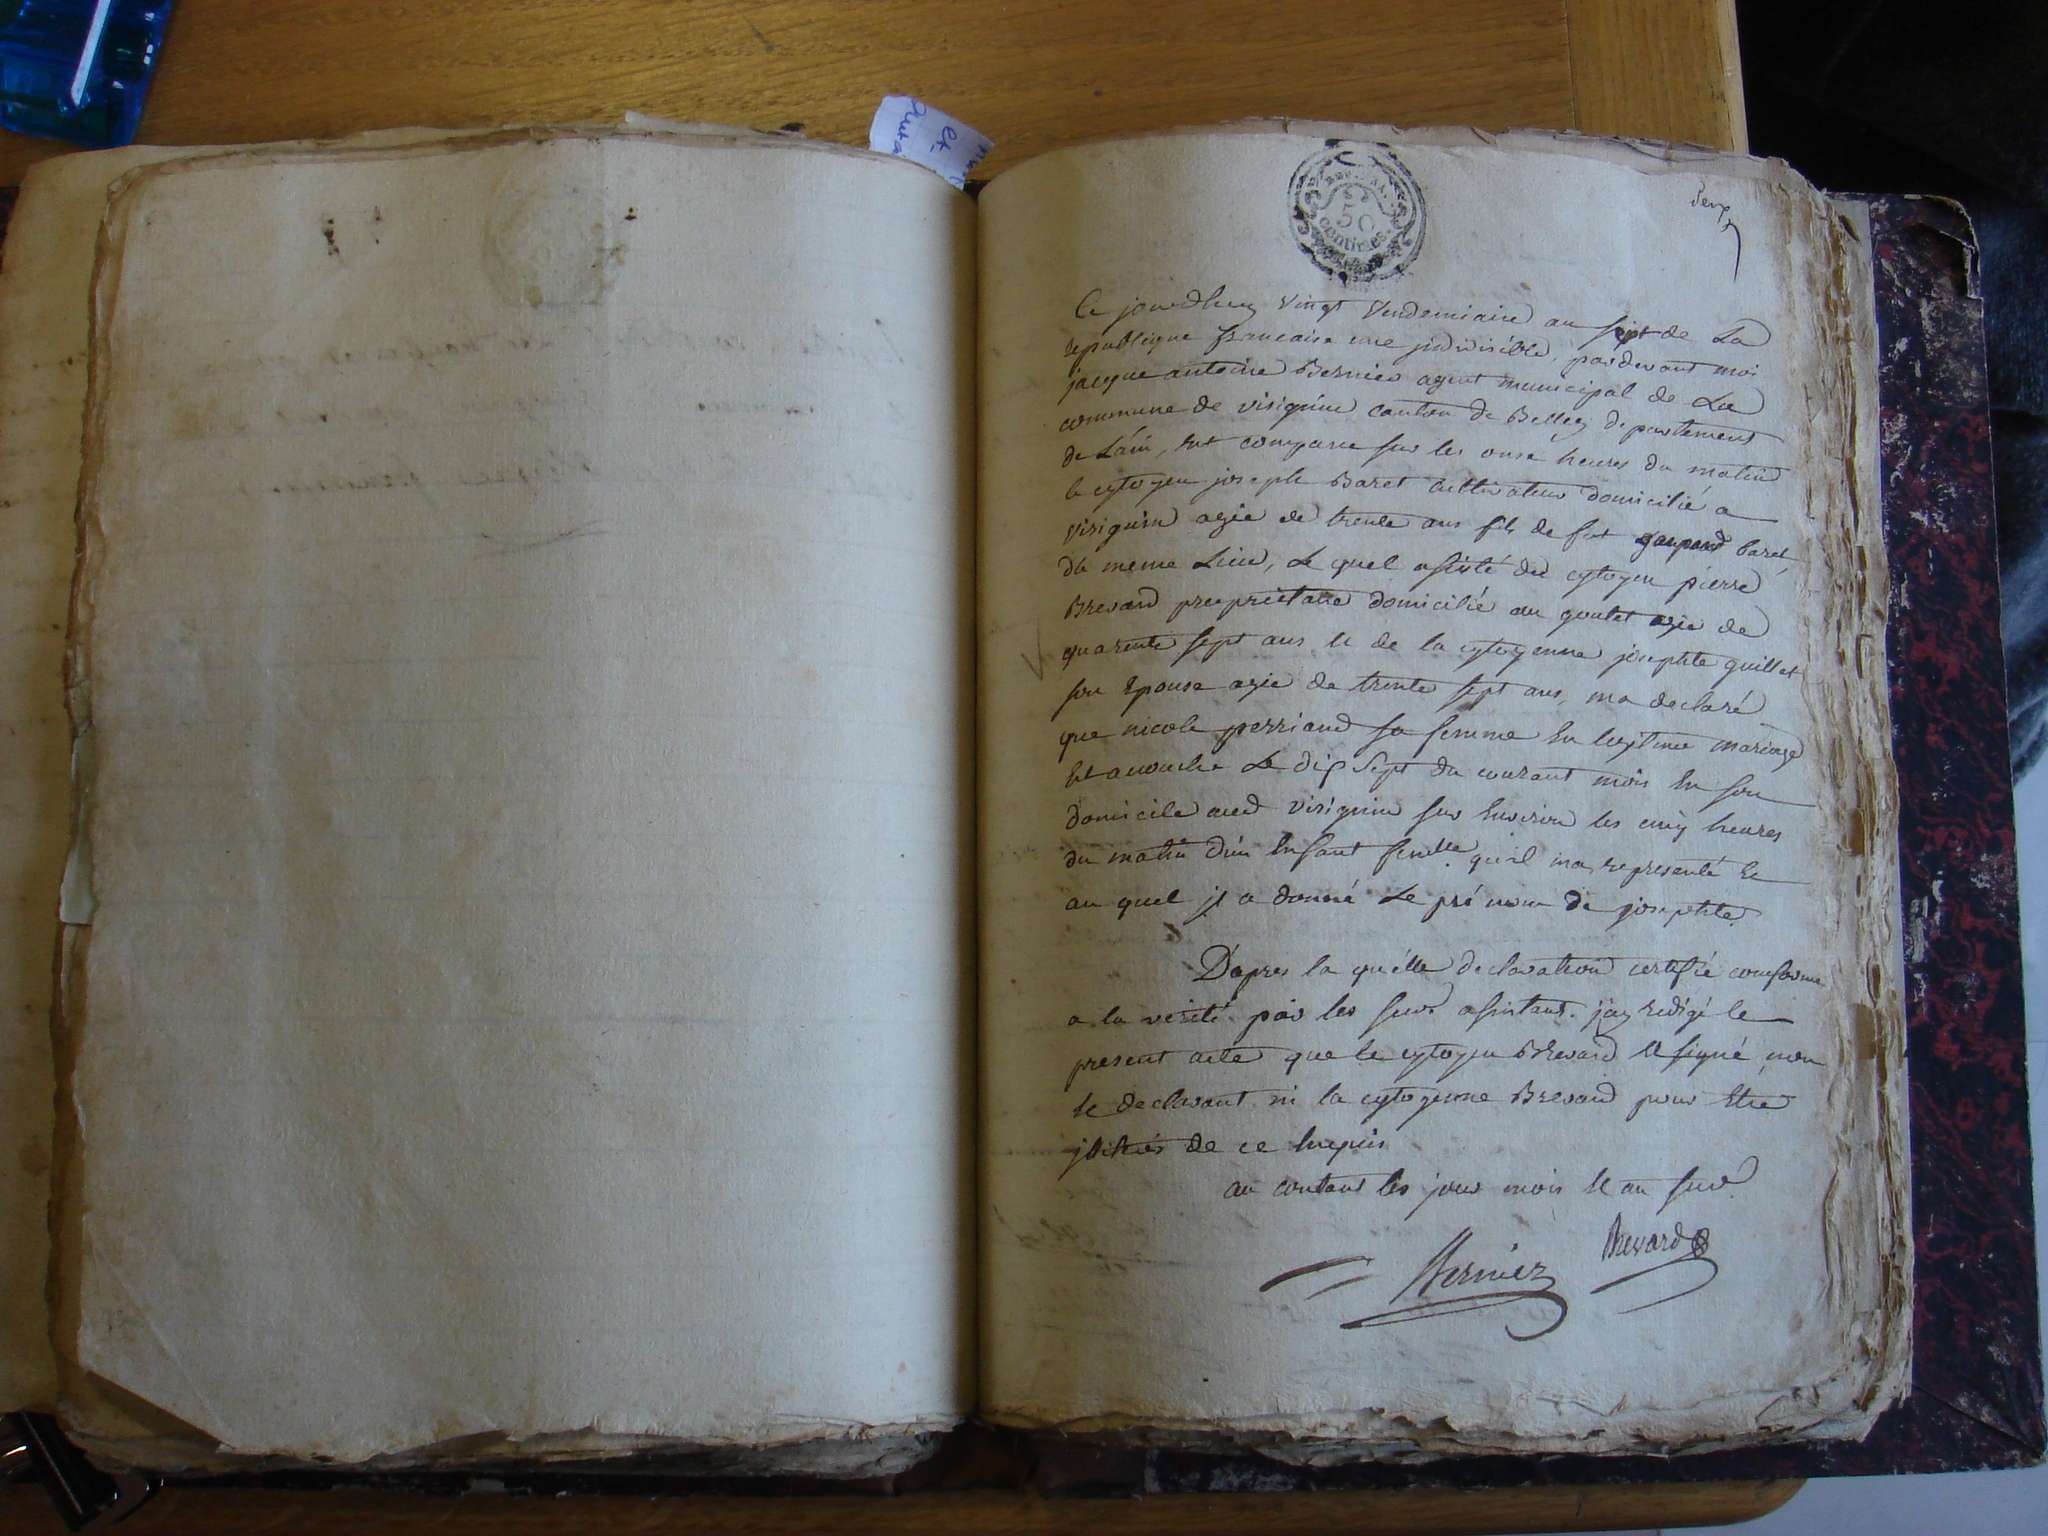 et
deux
50
centimes
Ce jourdhuy vingt vendemiaire an sept de La
republique francaise une jndivisible, pardevant moi
jacque antoine Bernier agent municipal de La
commune de visignin canton de Belley departement
de Lain, est comparu sur les onse heures du matin
le cytoyen joseph Baret cultivateur domicilié a
visignin agée de trente ans fils de fut gaspard baret
du meme Lieu, Le quel asisté du cytoyen pierre
Brevard propriètaire domicilié au goutet agée de
quarente sept ans et de la cytoyenne josephte guillet
son Epouse agée de trente sept ans, ma declaré
que nicole perriand sa femme En legitime mariage
Est acouché Le dix sept du courant mois En son
domicile aud visignin sur Environ les cinq heures
du matin d'un Enfant femelle qu'il ma representé Et
au quel jl a donné Le pré nom de josephte.
D'apres la quelle declaration certifié conforme
a la verité par les susd asistant. j'ay redigé le
present acte que le cytoyen Brevard a signé non
le declarant ni la cytoyenne Brevard pour Etre
jlitéré de ce Enquis
au contant les jour mois et an susd.
Bernier Brevard